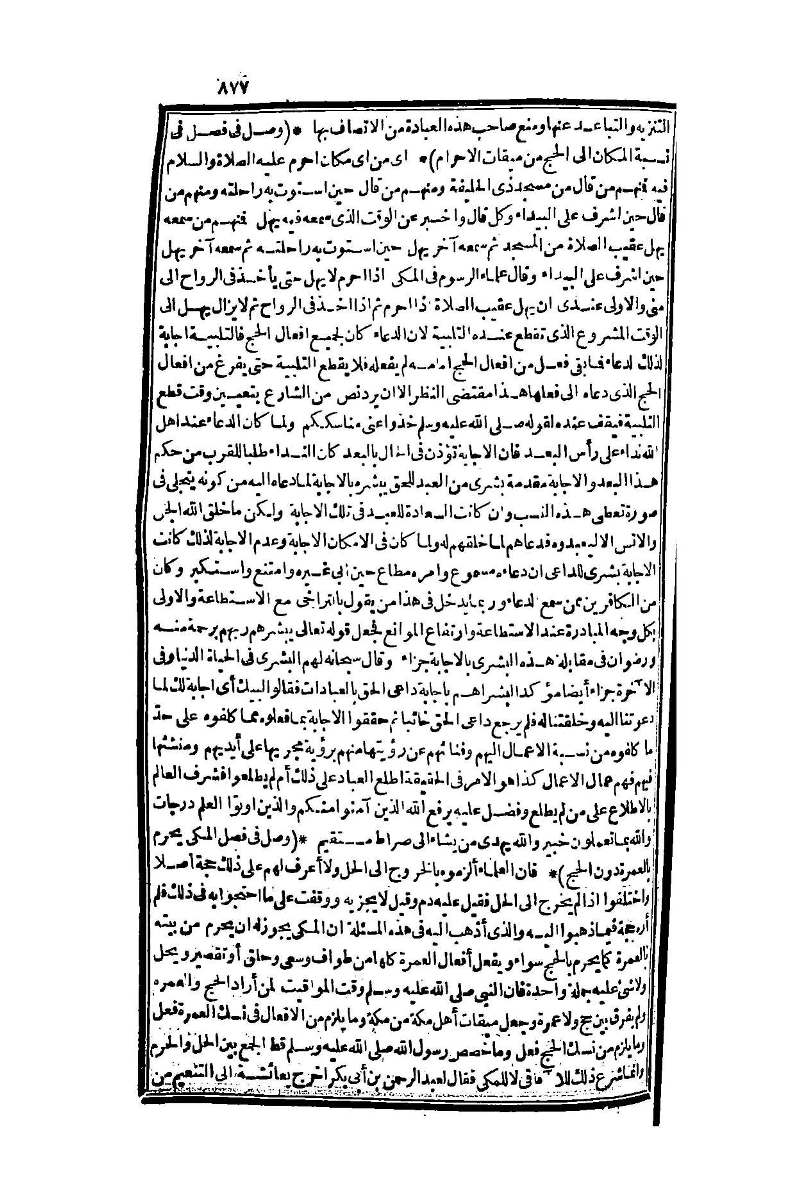 ٨٧٧
التنزيه والتباعد عنها ومنع صاحب هذه العبادة من الاتصاف بها * (وصل فى فصل فى
نسبة المكان الى الحج من ميقات الاحرام) * اى من اى مكان احرم عليه الصلاة والسلام
فيه فمنهم من قال من مسجد ذى الحليفة ومنهم من قال حين استوت به راحلته ومنهم من
قال حين اشرف على البيداء وكل قال واخبر عن الوقت الذى سمعه فيه يهل فمنهم من سمعه
يهل عقيب الصلاة من المسجد ثم سمعه آخر يهل حين استوت به راحلته ثم سمعه آخر يهل
حين اشرف على البيداء وقال علماء الرسوم فى المكى اذا احرم لا يهل حتى يأخذ فى الرواح الى
منى والاولى عندى ان يهل عقيب الصلاة اذا احرم ثم اذا اخذ فى الرواح ثم لا يزال يهل الى
الوقت المشروع الذى تقطع عنده التلبية لان الدعاء كان لجميع افعال الحج فالتلبية اجابة
لذلك الدعاء فما بقى فعل من افعال الحج امامه لم يفعله فلا يقطع التلبية حتى يفرغ من افعال
الحج الذى دعاه الى فعلها هذا مقتضى النظر الا ان يرد نص من الشارع بتعيين وقت قطع
التلبية فيقف عنده لقوله صلى الله عليه وسلم خذوا عنى مناسككم ولما كان الدعاء عند اهل
الله نداء على رأس البعد فان الاجابة تؤذن فى الحال بالبعد كان النداء طلبا للقرب من حكم
هذا البعد والاجابة مقدمة بشرى من العبد للحق يبشره بالاجابة لما دعاه اليه من كونه يتجلى فى
صورة تعطى هذه النسب وان كانت السعادة للعبد فى تلك الاجابة ولكن ما خلق الله الجن
والانس الا ليعبدوه فدعاهم لما خلقهم له ولما كان فى الامكان الاجابة وعدم الاجابة لذلك كانت
الاجابة بشرى للداعى ان دعاءه مسموع وامره مطاع حين ابى غيره وامتنع واستكبر وكان
من الكافرين ممن سمع الدعاء وربما يدخل فى هذا من يقول بالتراخى مع الاستطاعة والاولى
بكل وجه المبادرة عند الاستطاعة وارتفاع الموانع فجعل قوله تعالى يبشرهم ربهم برحمة منه
ورضوان فى مقابلة هذه البشرى بالاجابة جزاء وقال سبحانه لهم البشرى فى الحياة الدنيا وفى
الآخرة جزاء أيضا مؤكدا لبشراهم باجابة داعى الحق بالعبادات فقالوا لبيك أى اجابة لك لما
دعوتنا اليه وخلقتنا له فلم يرجع داعى الحق خائبا ثم حققوا الاجابة بما فعلوه مما كلفوه على حد
ما كلفوه من نسبة الاعمال اليهم وفنائهم عن رؤيتها منهم برؤية مجريها على أيديهم ومنشئها
فيهم فهم عمال الاعمال كذا هو الامر فى الحقيقة اطلع العباد على ذلك أم لم يطلعوا فشرف العالم
بالاطلاع على من لم يطلع وفضل عليه يرفع الله الذين آمنوا منكم والذين اوتوا العلم درجات
والله بما تعملون خبير والله يهدى من يشاء الى صراط مستقيم * (وصل فى فصل المكى يحرم
بالعمرة دون الحج) * فان العلماء ألزموه بالخروج الى الحل ولا أعرف لهم على ذلك حجة أصلا
واختلفوا اذا لم يخرج الى الحل فقيل عليه دم وقيل لا يجزيه ووقفت على ما احتجوا به فى ذلك فلم
أره حجة فيما ذهبوا اليه والذى أذهب اليه فى هذه المسئلة ان المكى يجوز له ان يحرم من بيته
بالعمرة كما يحرم بالحج سواء ويفعل أفعال العمرة كلها من طواف وسعى وحلق أو تقصير ويحل
ولا شئ عليه جملة واحدة فان النبى صلى الله عليه وسلم وقت المواقيت لمن أراد الحج والعمره
ولم يفرق بين حج ولا عمرة وجعل ميقات أهل مكة من مكة وما يلزم من الافعال فى نسك العمرة فعل
وما يلزم من نسك الحج فعل وما خصص رسول الله صلى الله عليه وسلم قط الجمع بين الحل والحرم
وانما شرع ذلك للآفاقى لا للمكى فقال لعبد الرحمن بن أبى بكر اخرج بعائشة الى التنعيم من